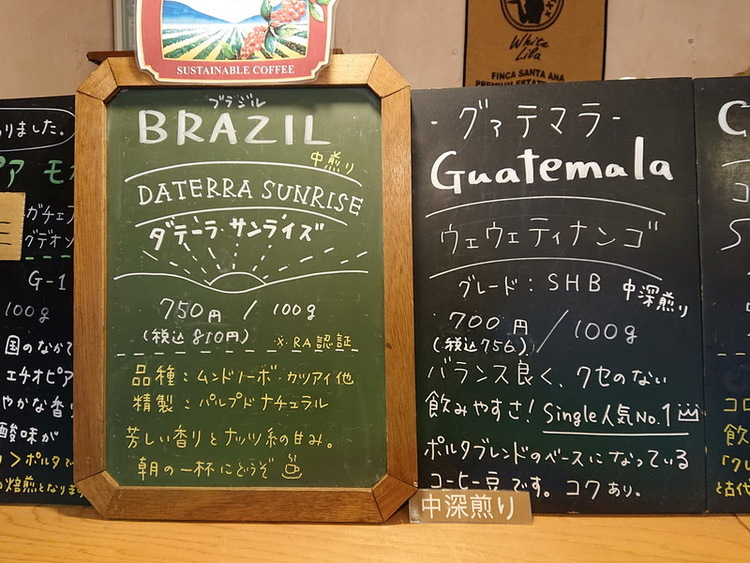 SUSTAINABLE COFFEE
White
Lila
FINCA SANTA ANA
PREMIUM ESTATE
りました。
ピア モ
ガチェフ
グデオン
G-1
100g
国のなかで
エチオピア
やかな香り
酸味が
> ポルタで
の焙煎となりま
ブラジル
BRAZIL
中煎り
DATERRA SUNRISE
ダテーラ・サンライズ
750円 / 100g
(税込810円) ※RA認証
品種：ムンドノーボ・カツアイ他
精製：パルプドナチュラル
芳しい香りとナッツ系の甘み。
朝の一杯にどうぞ
-グァテマラ-
Guatemala
ウェウェティナンゴ
グレード：SHB 中深煎り
700円 / 100g
(税込756)
バランス良く、クセのない
飲みやすさ! Single人気No.1
ポルタブレンドのベースになっている
コーヒー豆です。コクあり。
中深煎り
コロ
飲
「ク
と古代